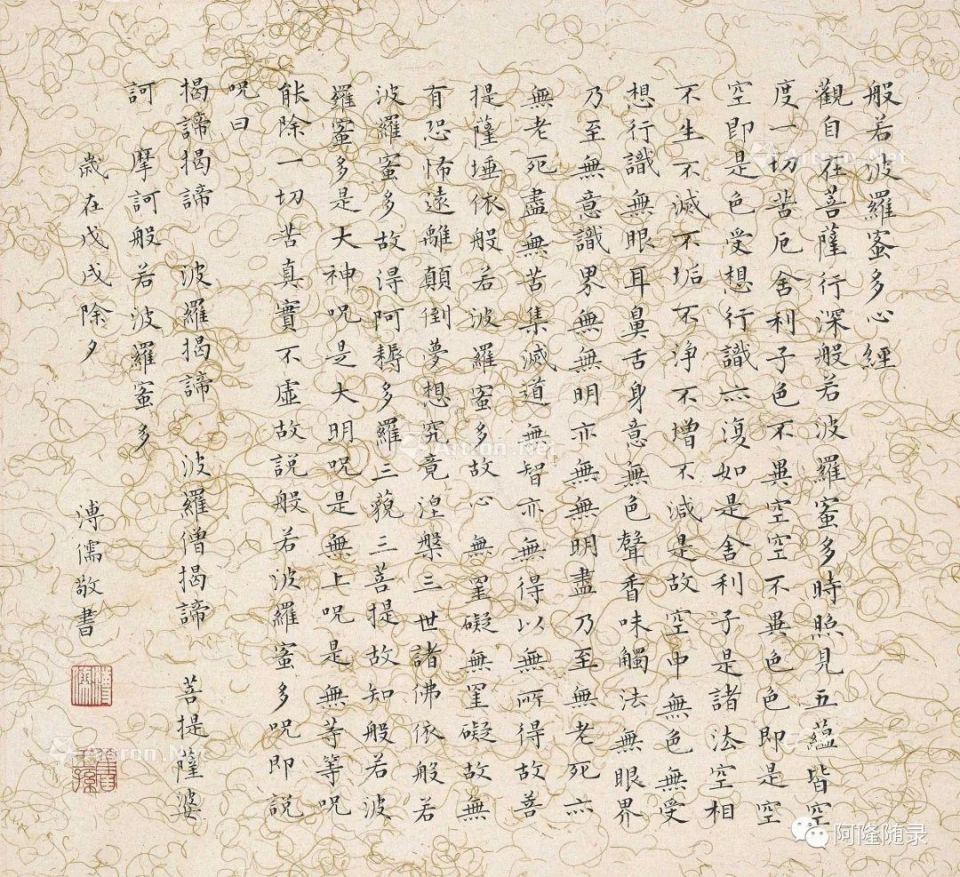 般若波羅蜜多心經
觀自在菩薩行深般若波羅蜜多時照見五蘊皆空
度一切苦厄舍利子色不異空空不異色色即是空
空即是色受想行識亦復如是舍利子是諸法空相
不生不滅不垢不淨不增不減是故空中無色無受
想行識無眼耳鼻舌身意無色聲香味觸法無眼界
乃至無意識界無無明亦無無明盡乃至無老死亦
無老死盡無苦集滅道無智亦無得以無所得故菩
提薩埵依般若波羅蜜多故心無罣礙無罣礙故無
有恐怖遠離顛倒夢想究竟涅槃三世諸佛依般若
波羅蜜多故得阿耨多羅三藐三菩提故知般若波
羅蜜多是大神呪是大明呪是無上呪是無等等呪
能除一切苦真實不虛故說般若波羅蜜多呪即說
呪曰
揭諦揭諦 波羅揭諦 波羅僧揭諦 菩提薩婆
訶 摩訶般若波羅蜜多
歲在戊戌除夕 溥儒敬書
Artron.Net
阿隆随录